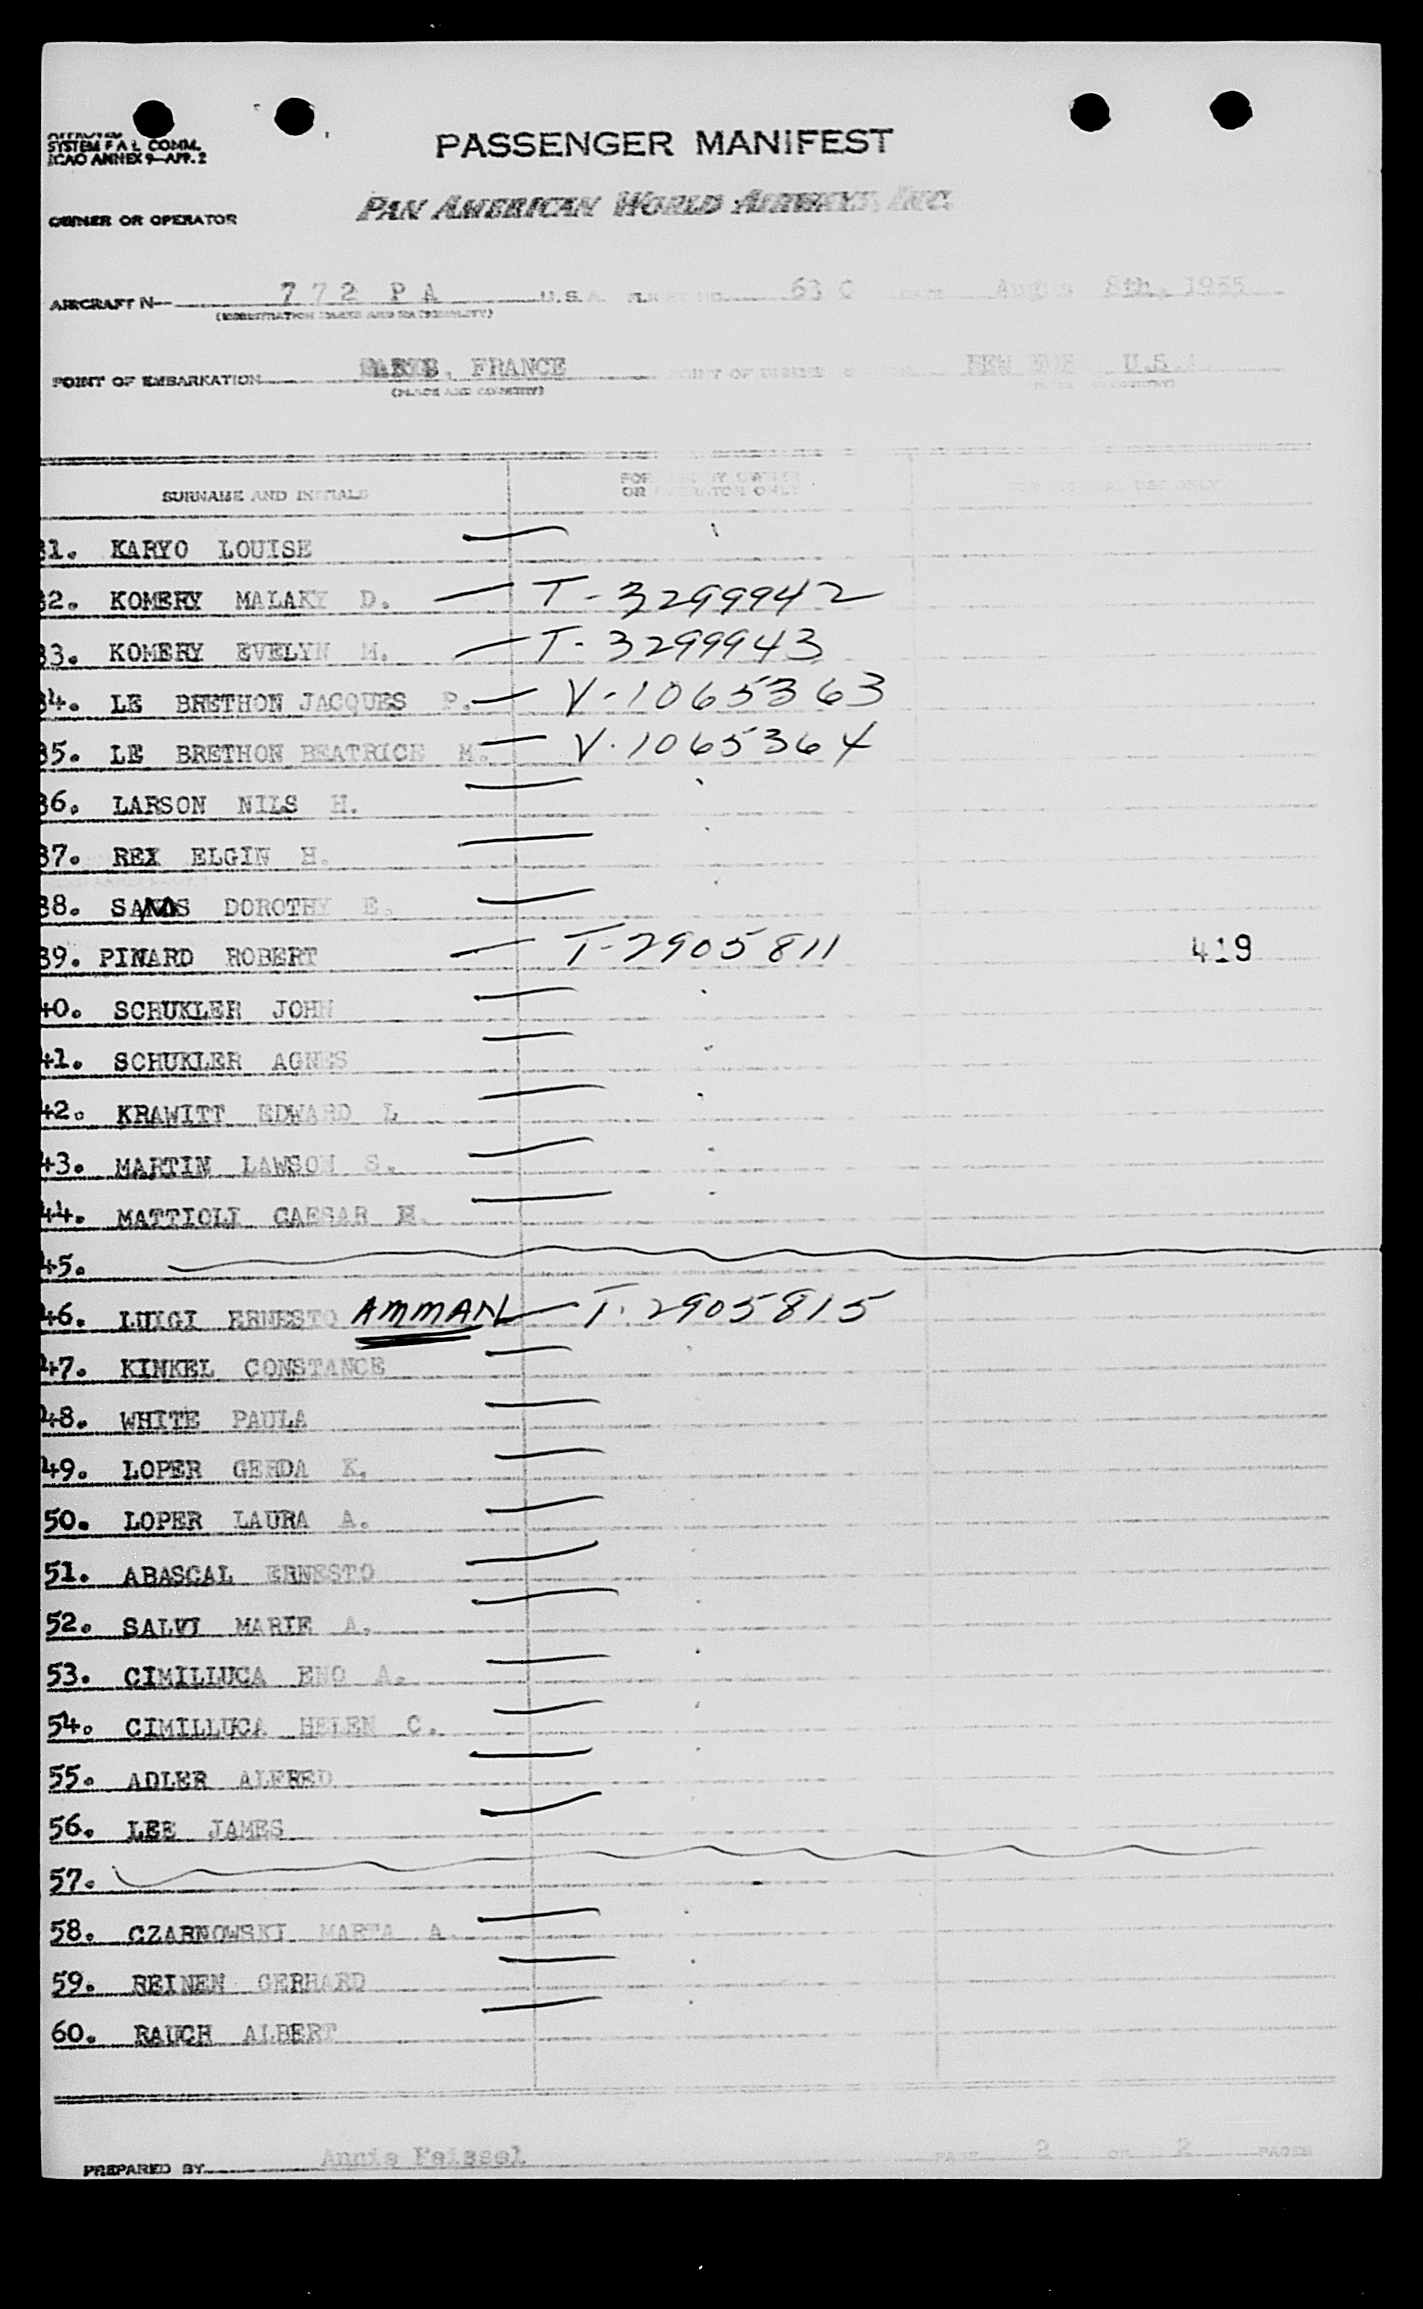 PASSENGER MANIFEST
SYSTEM F A L COMM.
ICAO ANNEX 9—APP. 2
OWNER OR OPERATOR PAN AMERICAN WORLD AIRWAYS, INC.
AIRCRAFT N— 772 PA U.S.A. FLIGHT NO. 63 C DATE 8th, 1955
(REGISTRATION MARKS AND NATIONALITY)
POINT OF EMBARKATION PARIS, FRANCE POINT OF NEW U.S.
(PLACE AND COUNTRY)
SURNAME AND INITIALS FOR USE BY OWNER OR OPERATOR ONLY FOR OFFICIAL USE ONLY
31. KARYO LOUISE
32. KOMERY MALAKY D. — T-3299942
33. KOMERY EVELYN M. — T-3299943
34. LE BRETHON JACQUES P. — V-1065363
35. LE BRETHON BEATRICE M. — V-1065364
36. LARSON NILS H.
37. REX ELGIN H.
38. DOROTHY E.
39. PINARD ROBERT — T-2905811 419
40. SCHUKLER JOHN
41. SCHUKLER AGNES
42. KRAWITT EDWARD L
43. MARTIN LAWSON S.
44. MATTIOLI CAESAR E.
45.
46. LUIGI ERNESTO AMMAN — T-2905815
47. KINKEL CONSTANCE
48. WHITE PAULA
49. LOPER GERDA K.
50. LOPER LAURA A.
51. ABASCAL ERNESTO
52. SALVI MARIE A.
53. CIMILLUCA ENO A.
54. CIMILLUCA HELEN C.
55. ADLER ALFRED
56. LEE JAMES
57.
58. CZARNOWSKI MARTA A.
59. REINEN GERHARD
60. RAUCH ALBERT
PREPARED BY Annie Feissel PAGE 2 OF 2 PAGES